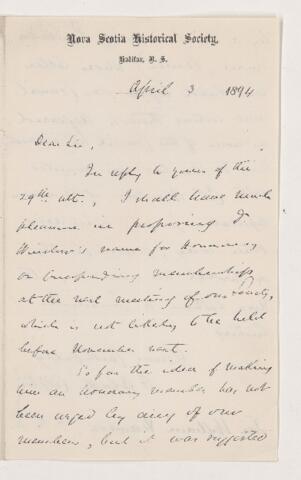 Nova Scotia Historical Society,
Halifax, N. S.
April 3 1894
Dear Sir,
In reply to yours of the
29th ult., I shall have much
pleasure in proposing Dr
Winslow's name for Honorary
or Corresponding membership,
at the next meeting of our Society,
which is not likely to be held
before November next.
So far the idea of making
him an Honorary member has not
been urged by any of our
members, but it was suggested